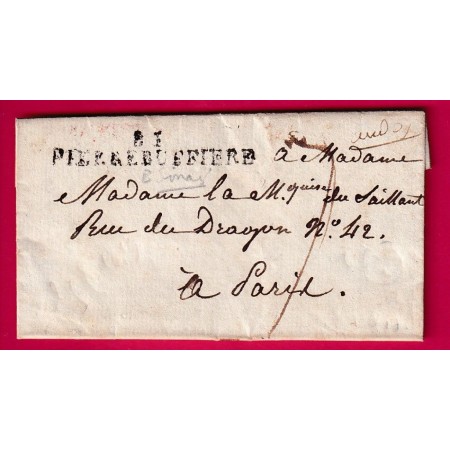 81
PIERREBUFFIERE
a Madame
Madame la M.quise du Saillant
Rue du Dragon N.o 42.
a Paris.